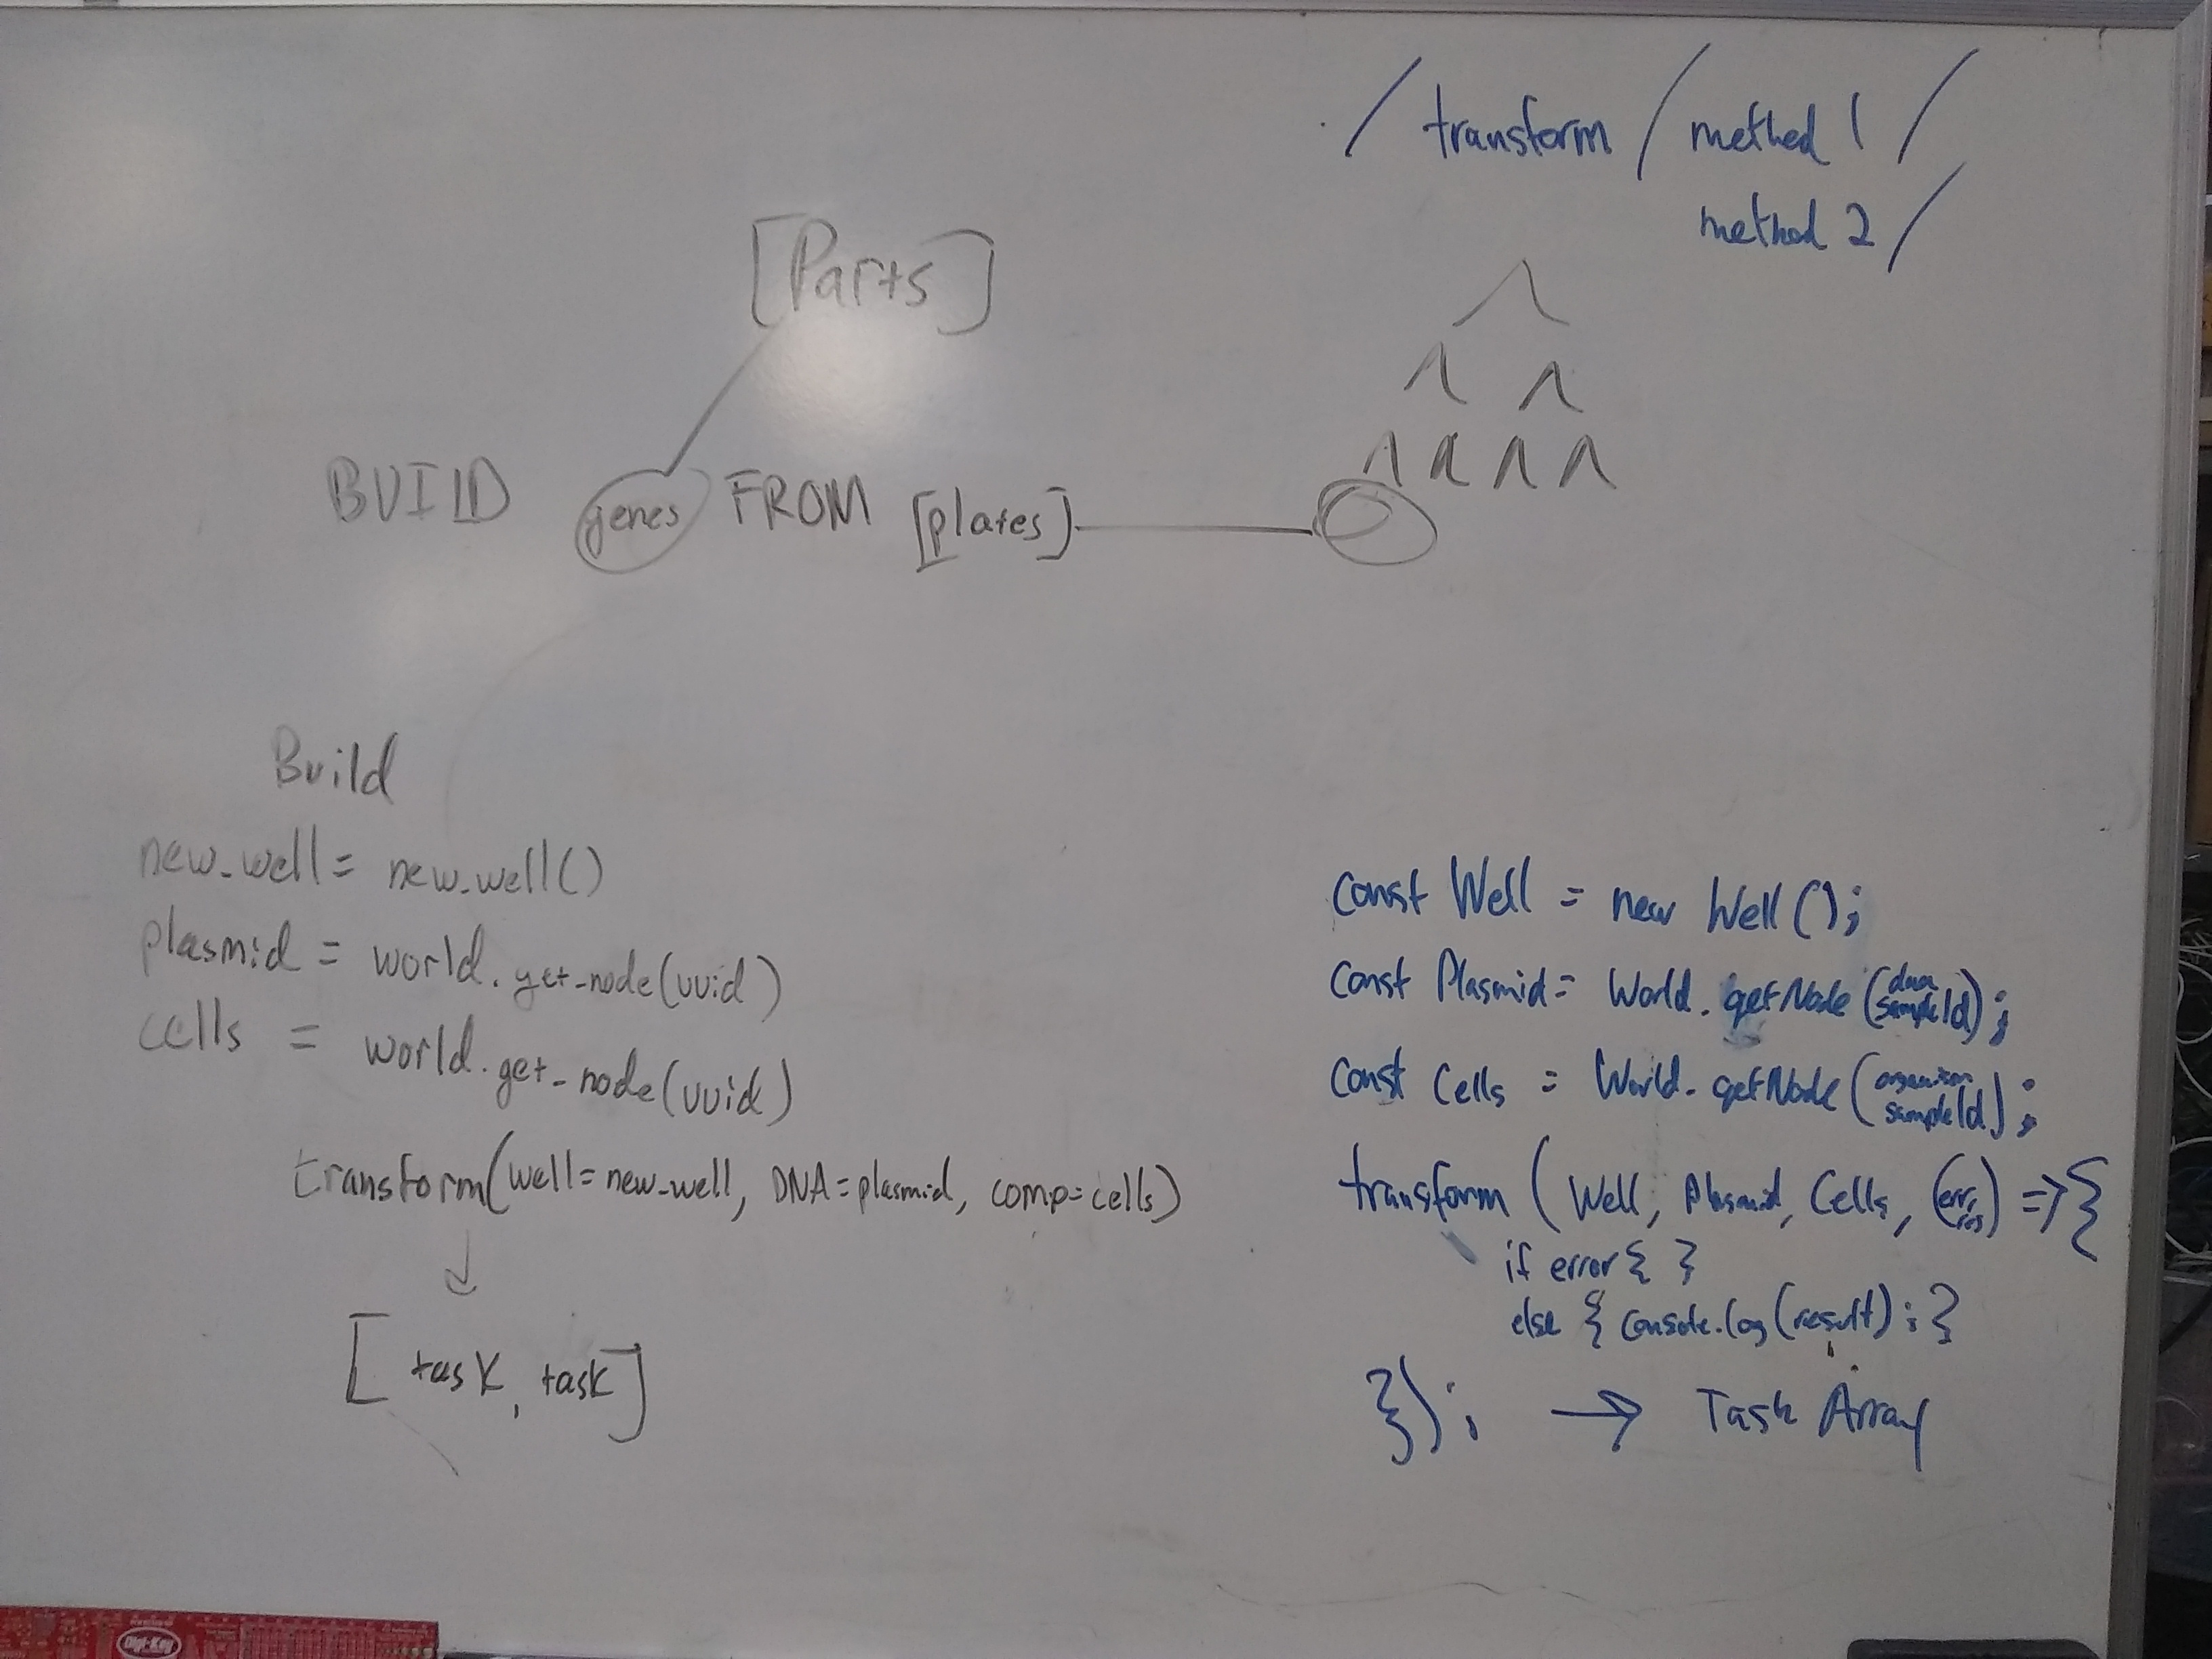 / transform / method 1 /
method 2 /
[Parts]
BUILD genes FROM [plates]
Build
new_well = new_well()
plasmid = world.get_node(uuid)
cells = world.get_node(uuid)
transform(well=new_well, DNA=plasmid, comp=cells)
[task, task]
const Well = new Well();
const Plasmid = World.getNode(dna sampleId);
const Cells = World.getNode(organism sampleId);
transform (Well, Plasmid, Cells, (err, res) => {
if error { }
else { console.log(result); }
}); → Task Array
Digi-Key